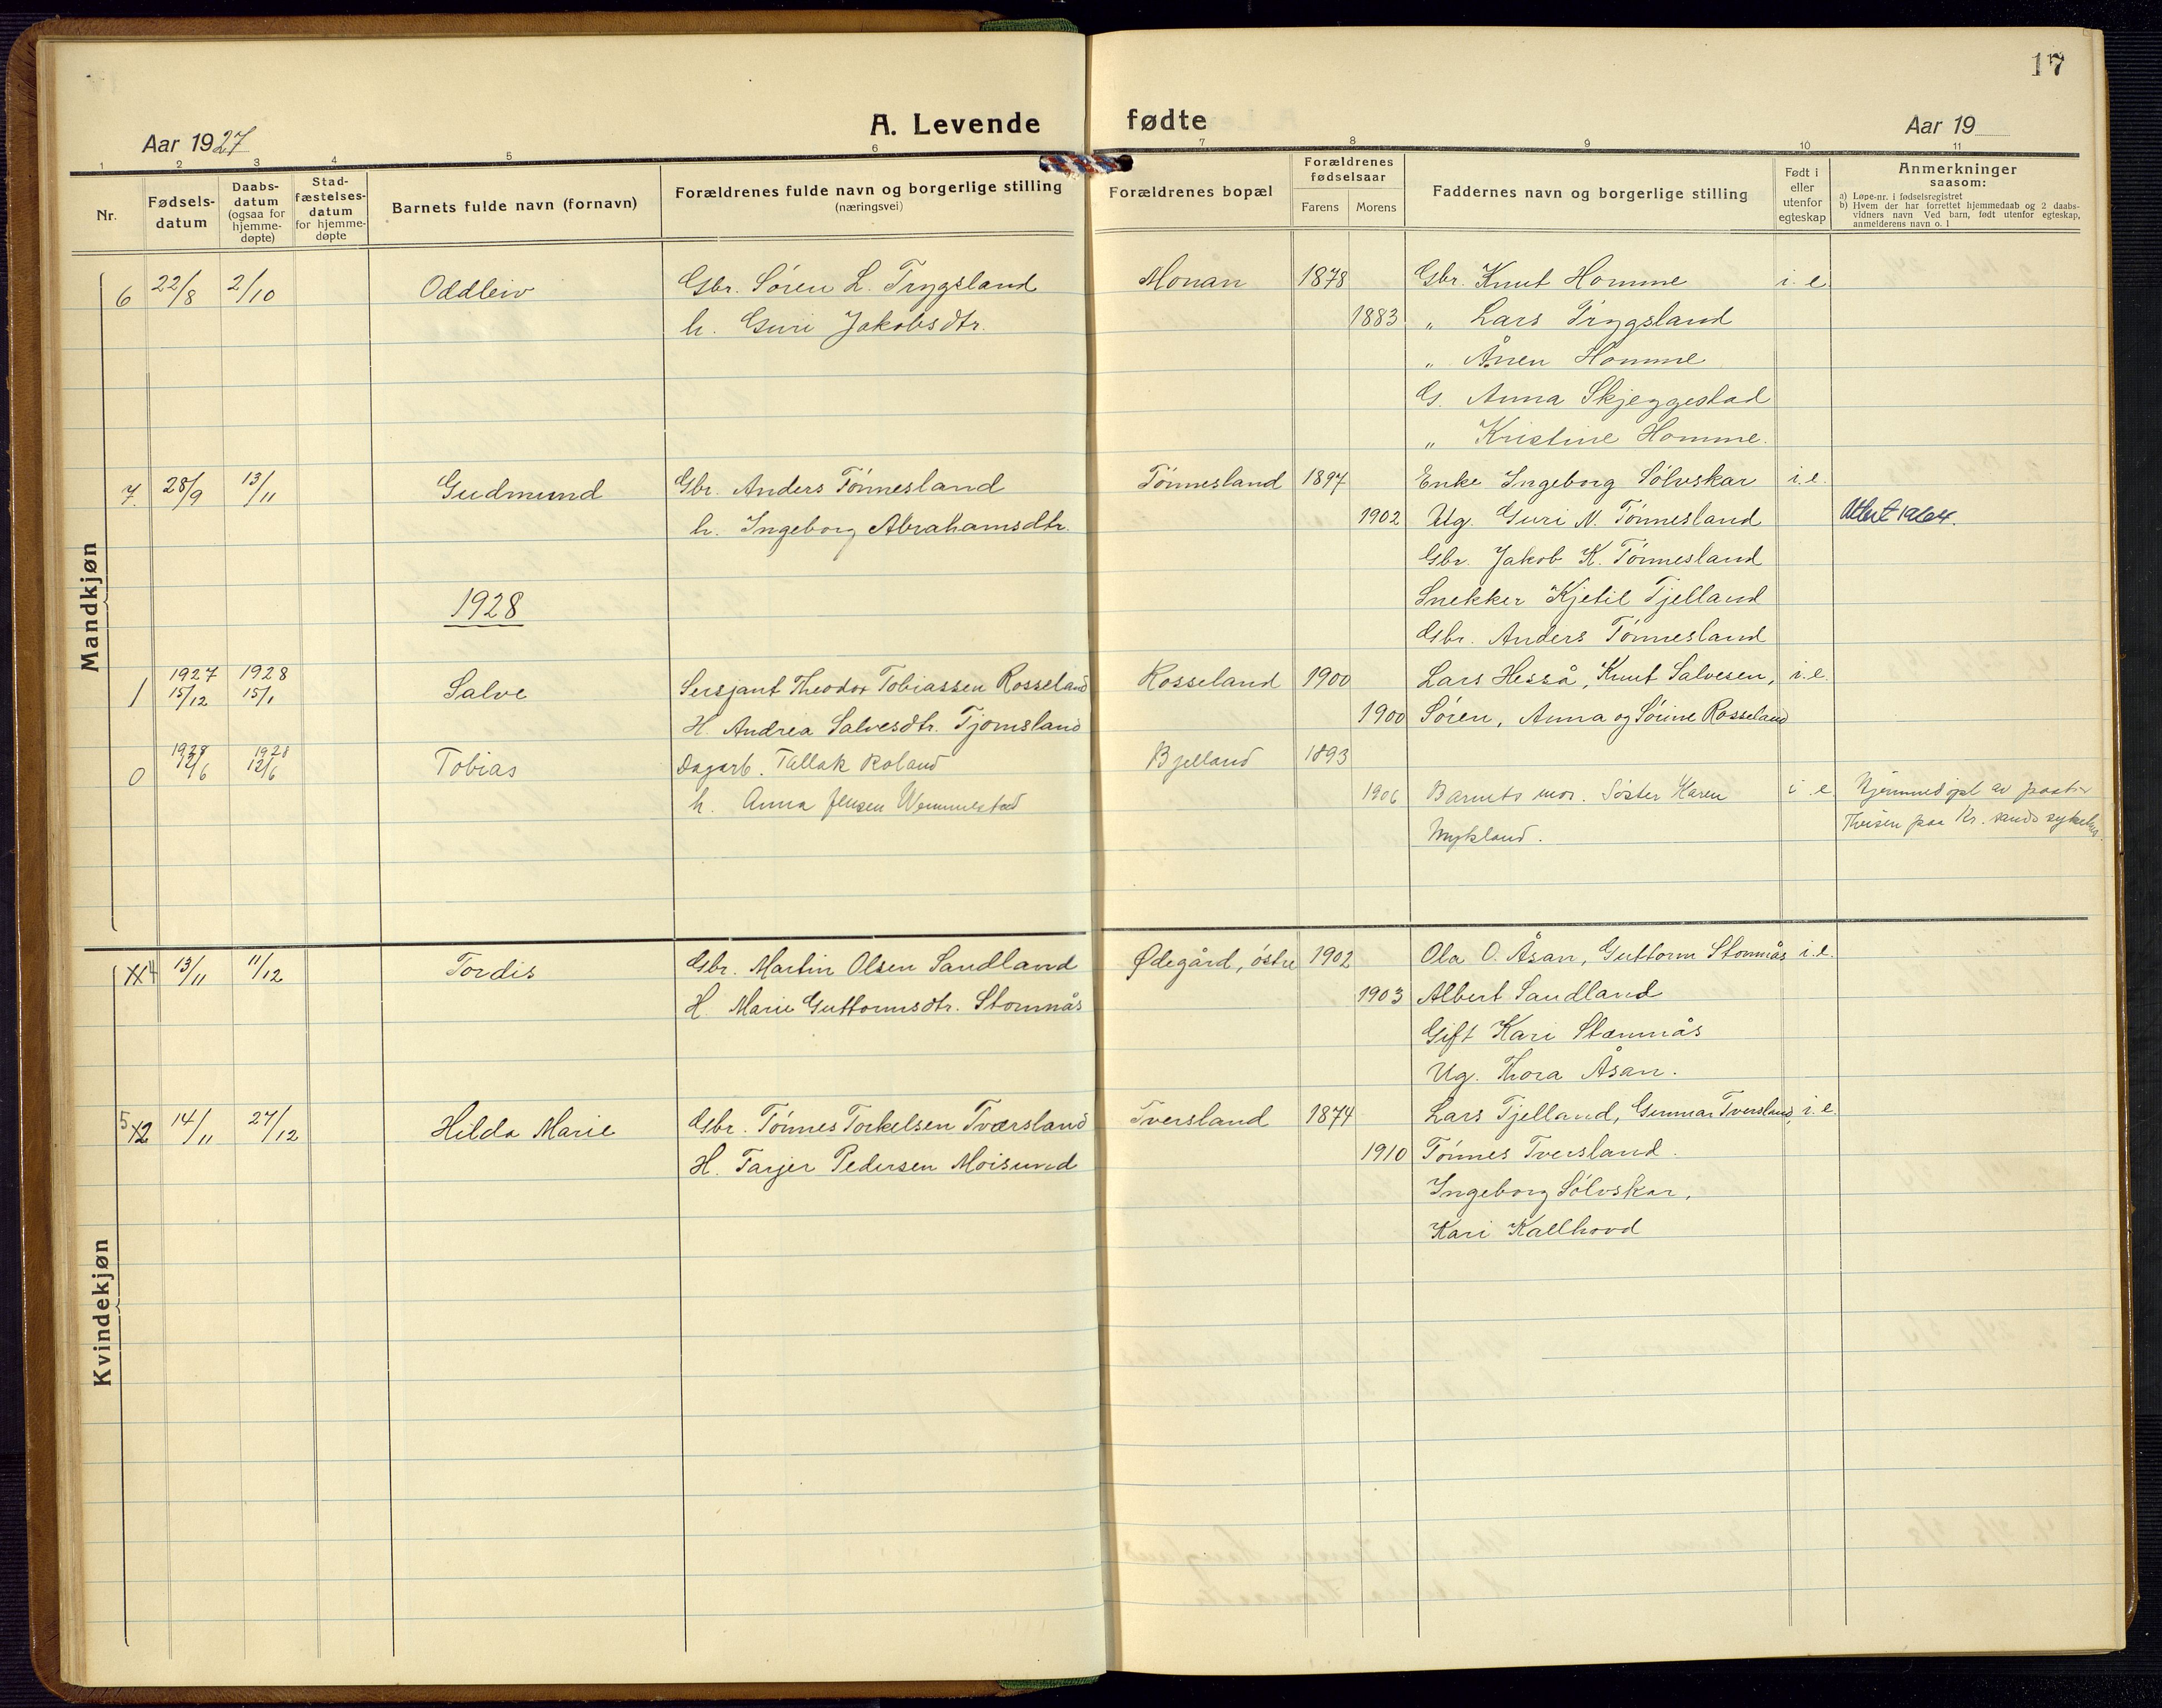 17
A. Levende fødte
Aar 1927
Aar 19
1 2 3 4 5 6 7 8 9 10 11
Nr.
Fødsels-datum
Daabs-datum (ogsaa for hjemme-døpte)
Stad-fæstelses-datum for hjemme-døpte
Barnets fulde navn (fornavn)
Forældrenes fulde navn og borgerlige stilling
(næringsvei)
Forældrenes bopæl
Forældrenes fødselsaar
Farens Morens
Faddernes navn og borgerlige stilling
Født i eller utenfor egteskap
Anmerkninger
saasom:
a) Løpe-nr. i fødselsregistret
b) Hvem der har forrettet hjemmedaab og 2 daabs-
vidners navn Ved barn, født utenfor egteskap,
anmelderens navn o. l
Mandkjøn
6 22/8 2/10 Oddleiv Gbr. Sören L. Trygsland Monan 1878 Gbr. Knut Homme i. e.
h. Guri Jakobsdtr. 1883 " Lars Trygsland
" Ånen Homme
G. Anna Skjeggestad
" Kristine Homme.
7. 28/9 13/11 Gudmund Gbr. Anders Tönnesland Tönnesland 1897 Enke Ingeborg Sölvskar i. e.
h. Ingeborg Abrahamsdtr. 1902 Ug. Guri N. Tönnesland 1964.
Gbr. Jakob K. Tönnesland
1928 Snekker Kjetil Tjelland
Gbr. Anders Tönnesland
1 1927 15/12 1928 15/1 Salve Sersjant Theodor Tobiassen Rosseland Rosseland 1900 Lars Hesså, Knut Salvesen, i. e.
H. Andrea Salvesdtr. Tjomsland 1900 Sören, Anna og Sörine Rosseland
0 1928 12/6 1928 12/6 Tobias Dagarb. Tallak Roland Bjelland 1893
h. Anna Jensen Wemmestad 1906 Barnets mor. Söster Karen i e Hjemmedöpt av pastor
Mykland. Theisen paa Kr. sands sykehus.
Kvindekjøn
4 13/11 11/12 Tordis Gbr. Martin Olsen Sandland Ødegård, östre 1902 Ola O. Åsan, Guttorm Stomnås i. e.
H Marie Guttormsdtr. Stomnås 1903 Albert Sandland
Gift Kari Stomnås
Ug. Thora Åsan.
5 14/11 27/12 Hilda Marie Gbr. Tönnes Torkelsen Tværsland Tversland 1874 Lars Tjelland, Gunnar Tversland, i. e.
H. Tarjer Pedersen Moisund 1910 Tönnes Tversland.
Ingeborg Sölvskar,
Kari Kallhovd